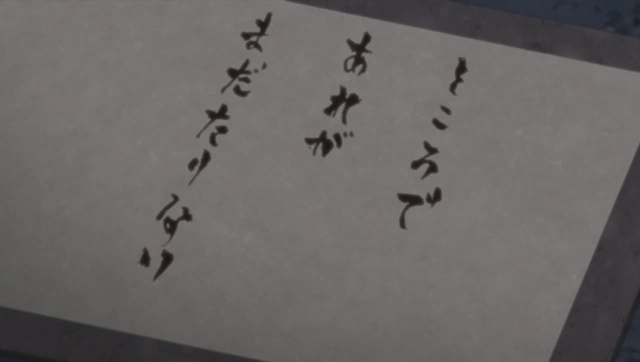 ところで
あれが
まだたりない